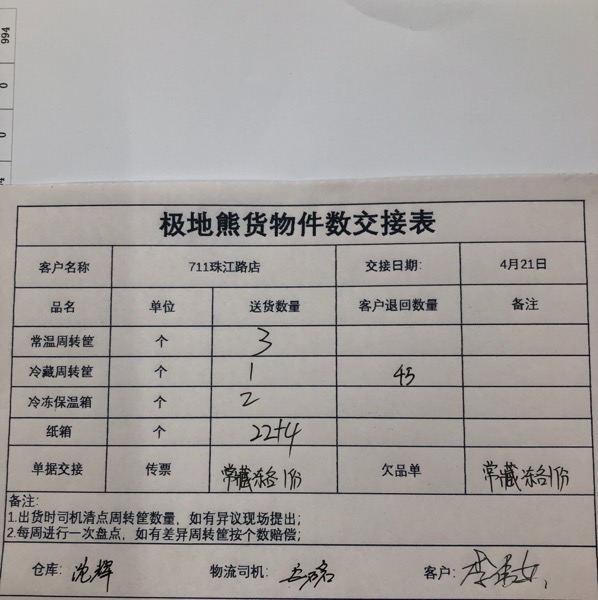 994
0
0
极地熊货物件数交接表
客户名称 711珠江路店 交接日期: 4月21日
品名 单位 送货数量 客户退回数量 备注
常温周转筐 个 3
冷藏周转筐 个 1 45
冷冻保温箱 个 2
纸箱 个 22+4
单据交接 传票 常藏冻各1份 欠品单 常藏冻各1份
备注:
1.出货时司机清点周转筐数量，如有异议现场提出;
2.每周进行一次盘点，如有差异周转筐按个数赔偿;
仓库: 沈辉 物流司机: 客户: